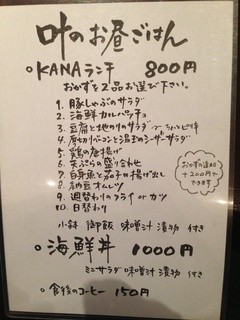 叶のお昼ごはん
○KANAランチ 800円
おかずを2品お選び下さい。
1. 豚しゃぶのサラダ
2. 海鮮カルパッチョ
3. 豆腐と地のりのサラダ
4. 厚切ベーコンと温玉のシーザーサラダ
5. 鶏の唐揚げ
6. 天ぷらの盛り合わせ
7. 白身魚と茄子の揚げ出し
8. 納豆オムレツ
9. 週替わりのフライ or カツ
10. 日替わり
おかずの追加
+200円で
できます
小鉢 御飯 味噌汁 漬物 付き
○海鮮丼 1000円
ミニサラダ 味噌汁 漬物 付き
○食後のコーヒー 150円